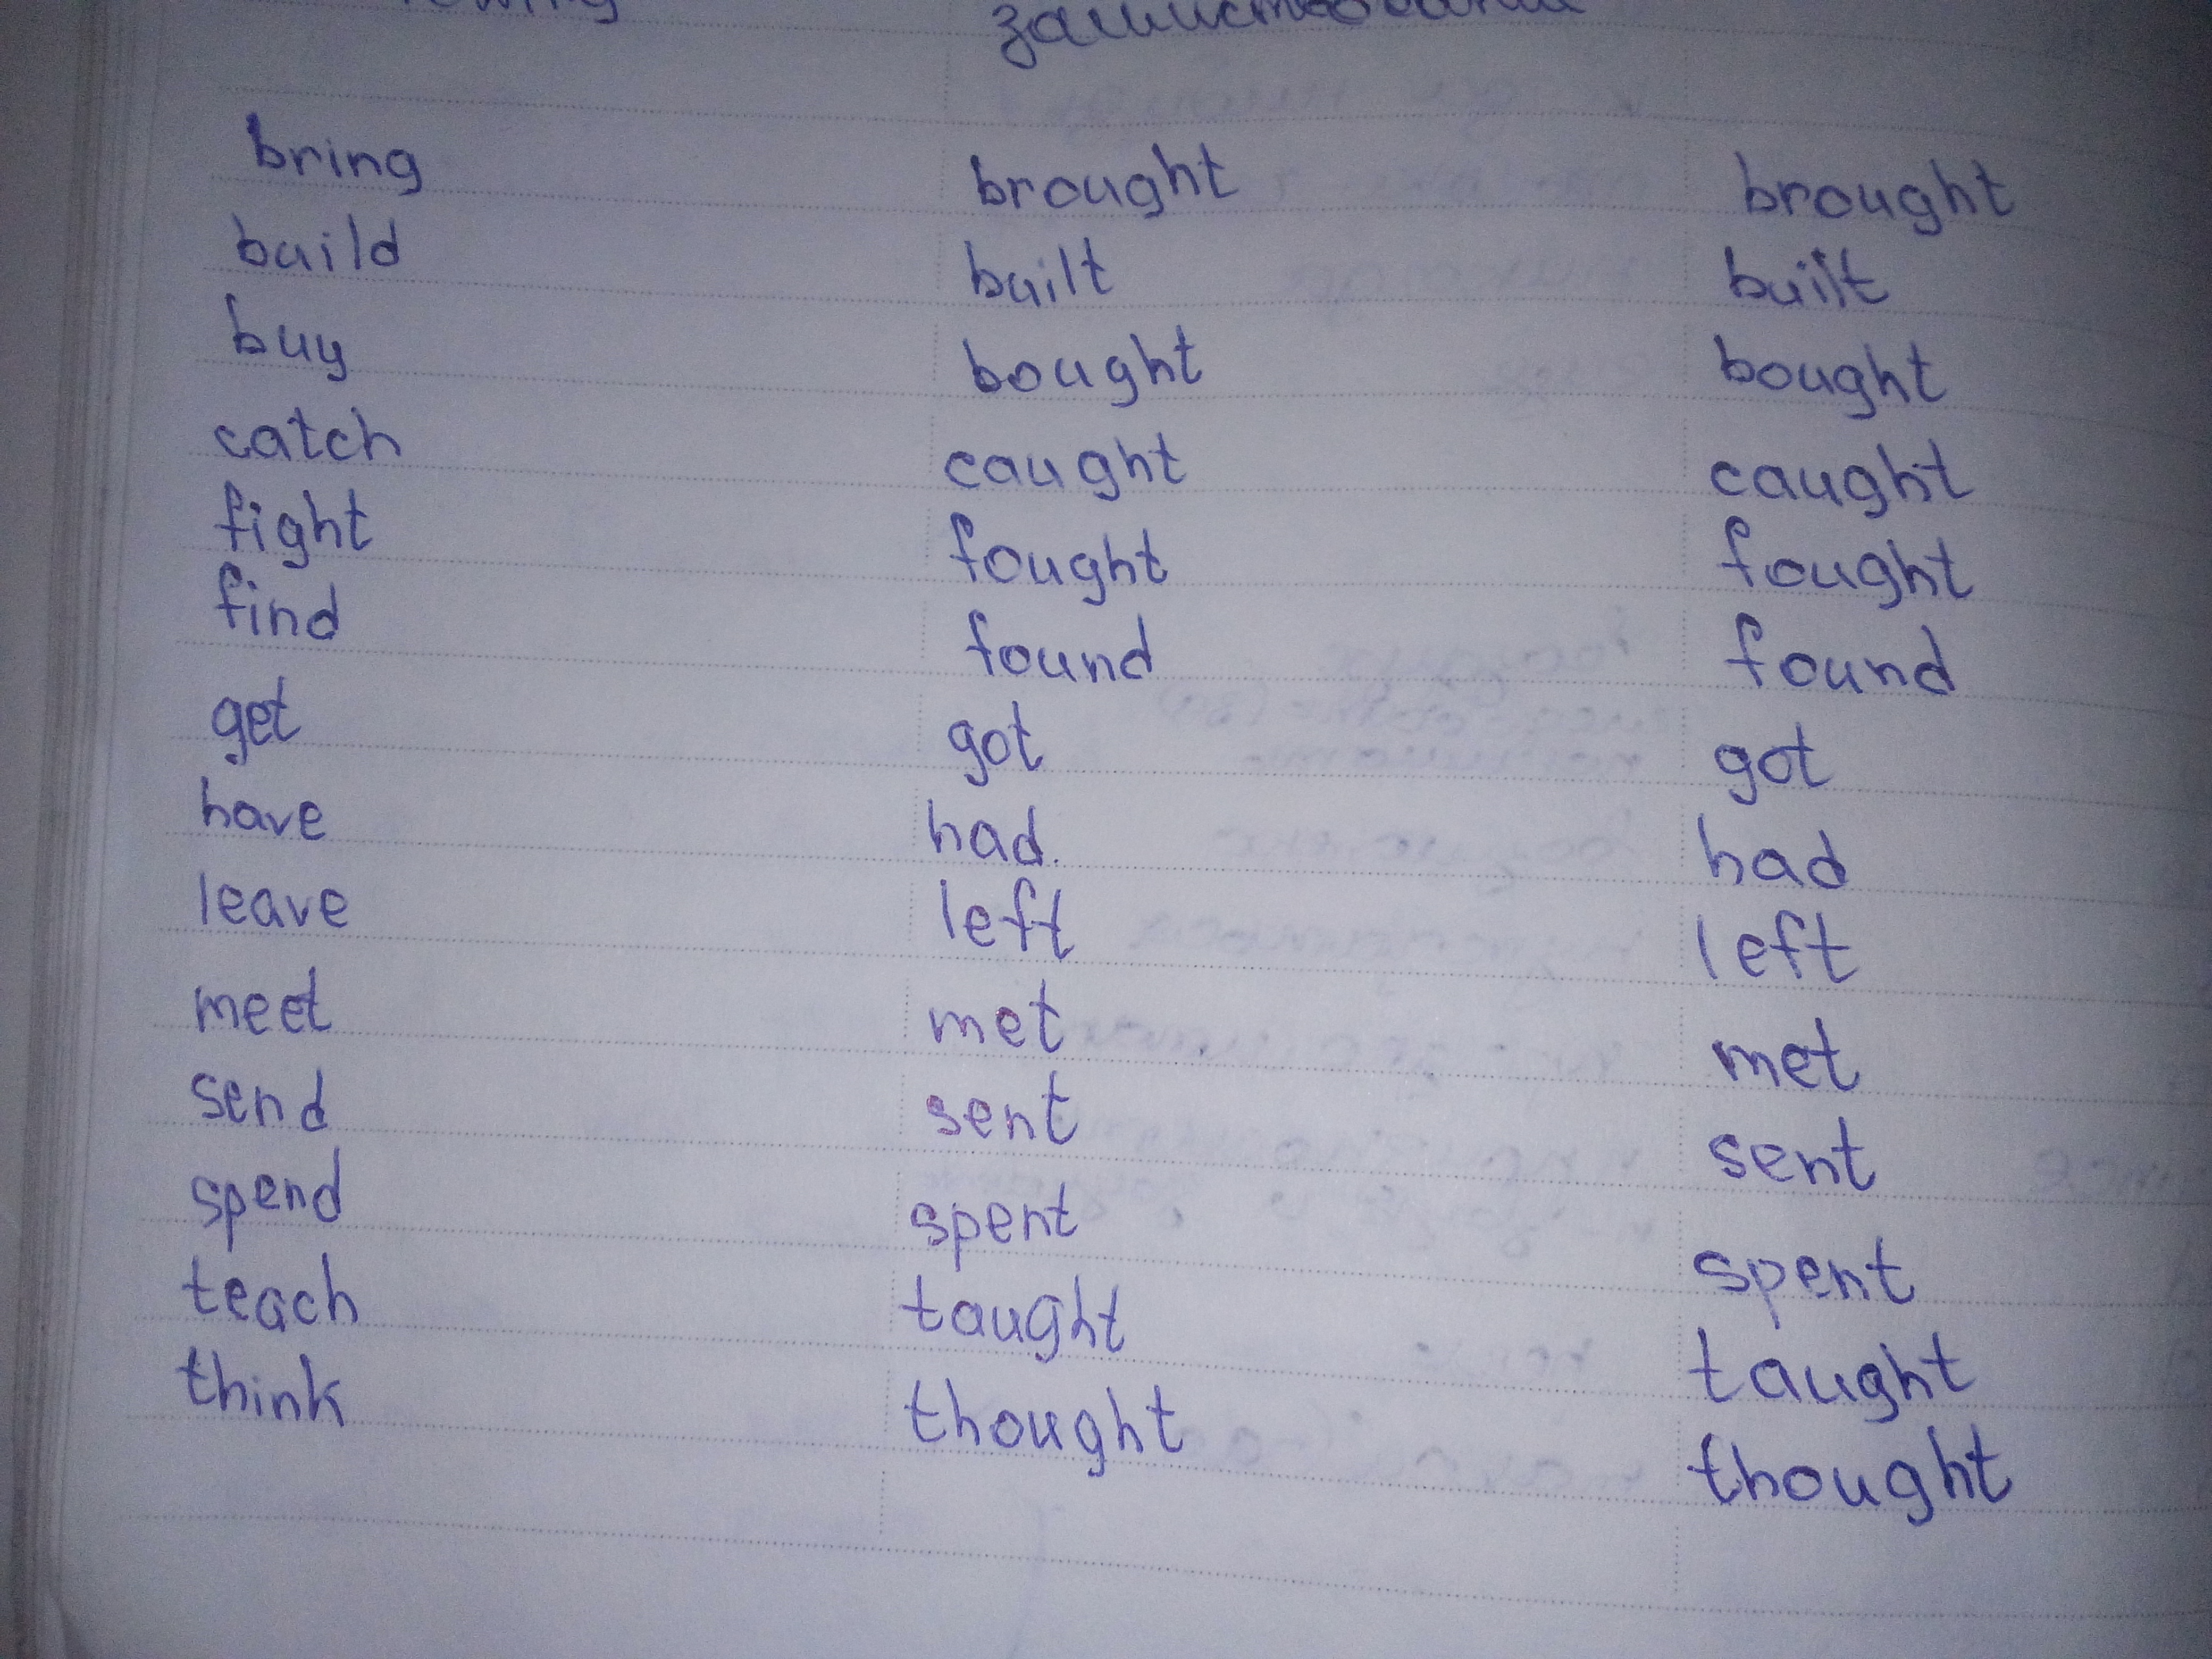 bring brought brought
build built built
buy bought bought
catch caught caught
fight fought fought
find found found
get got got
have had. had
leave left left
meet met met
send sent sent
spend spent spent
teach taught taught
think thought thought